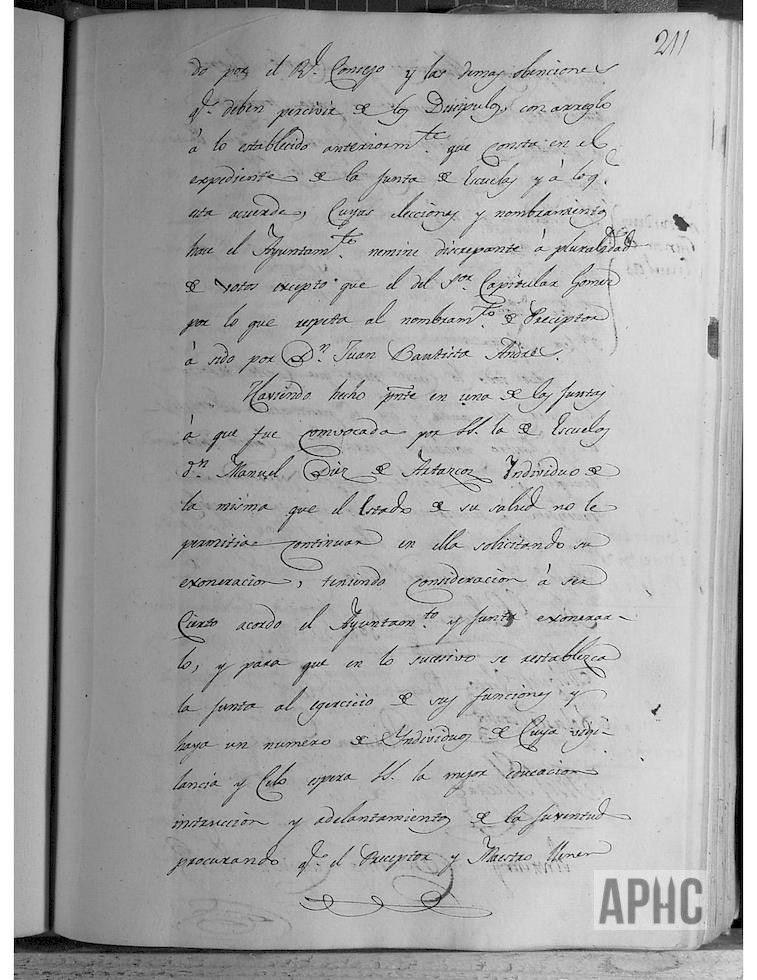 211
do por el Rl. Consejo y las demas obenciones
qe. deben percivir de los Discipulos, con arreglo
à lo establecido anteriormte. que consta en el
expediente de la Junta de Escuelas y à lo q.e
esta acuerde, Cuyas elecciones y nombramientos
hace el Ayuntamto. nemine discrepante à pluralidad
de votos excepto que el del Sor. Capitular Gomez
por lo que respeta al nombramto. de Preceptor
à sido por Dn. Juan Bautista Andres.
Haviendo hecho pnte en una de las Juntas
à que fue convocada por SS. la de Escuelas
dn. Manuel Diez de Artazcoz Yndividuo de
la misma que el Estado de su salud no le
permitia continuar en ella solicitando su
exoneracion, teniendo consideracion à ser
Cierto acordo el Ayuntamto. y Junta exonerar-
lo, y para que en lo sucesivo se restablezca
la Junta al egercicio de sus funciones y
haya un numero de Yndividuos de Cuya vigi-
lancia y Celo espera SS. la mejor educacion
instruccion y adelantamiento de la Juventud
procurando qe. el Preceptor y Maestro llenen
APHC